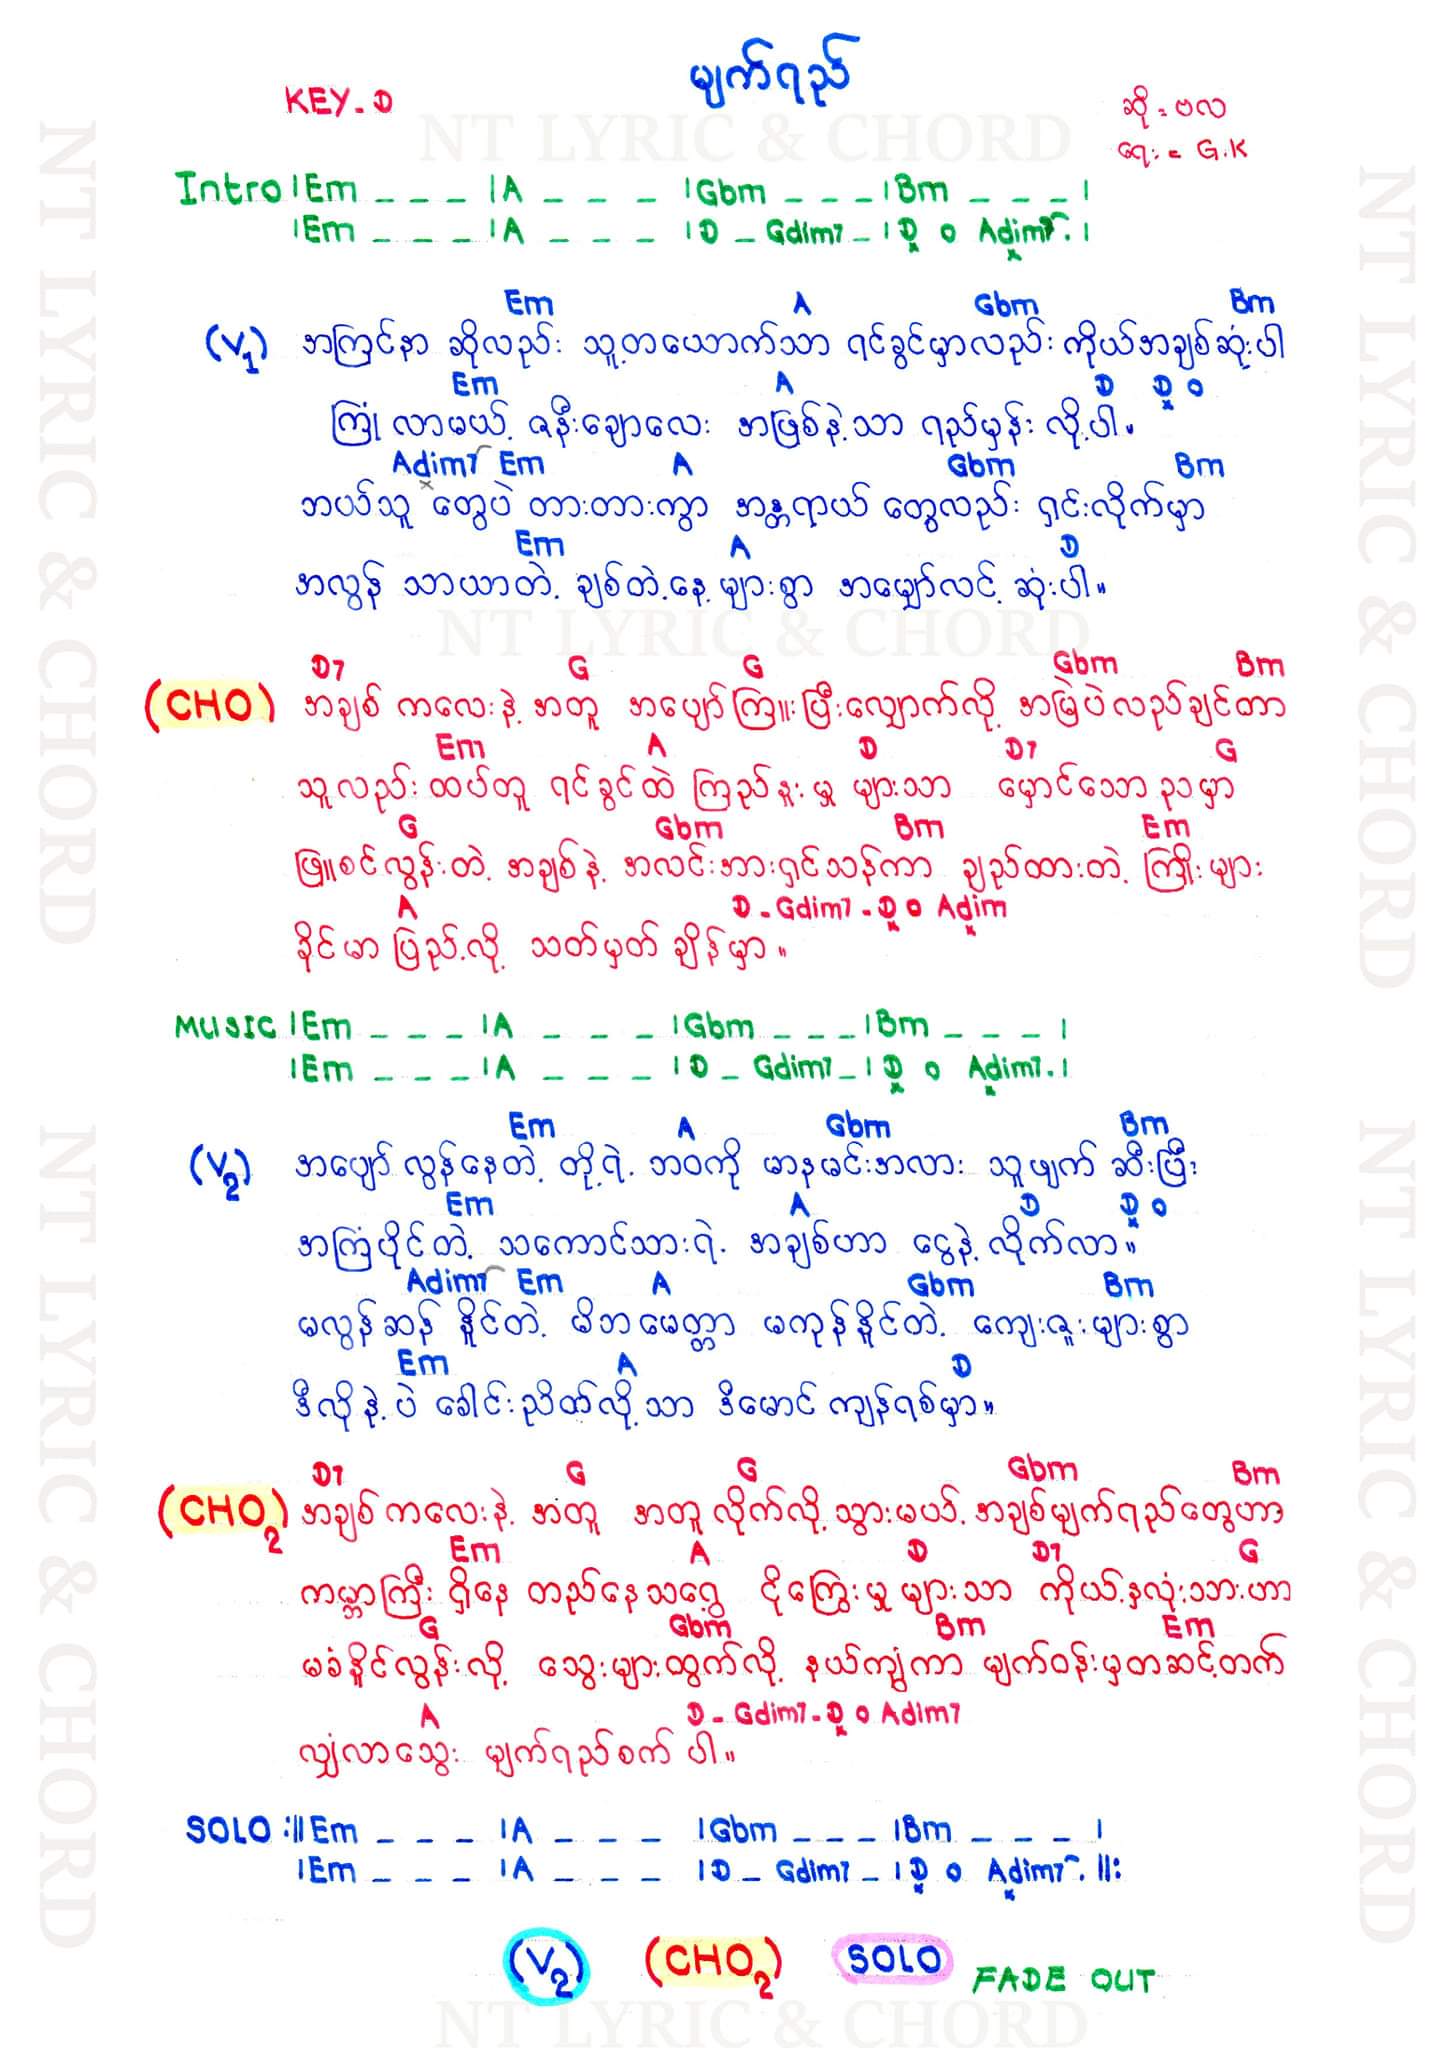 မျက်ရည်
KEY - D
ဆို = ဗလ
ရေး = G.K
NT LYRIC & CHORD
Intro |Em _ _ _ |A _ _ _ |Gbm _ _ _ |Bm _ _ _ |
|Em _ _ _ |A _ _ _ |D _ Gdim7 _ |D o Adim7. |
Em A Gbm Bm
(V1) အကြင်နာ ဆိုလည်း သူ့တယောက်သာ ရင်ခွင်မှာလည်း ကိုယ်အချစ်ဆုံးပါ
Em A D D o
ကြုံလာမယ့် ဇနီးချောလေး အဖြစ်နဲ့သာ ရည်မှန်း လို့ပါ။
Adim7 Em A Gbm Bm
ဘယ်သူ တွေပဲ တားတားကွာ အန္တရာယ် တွေလည်း ရှင်းလိုက်မှာ
Em A D
အလွန် သာယာတဲ့ ချစ်တဲ့နေ့များစွာ အမျှော်လင့် ဆုံးပါ။
NT LYRIC & CHORD
D7 G G Gbm Bm
(CHO) အချစ် ကလေးနဲ့ အတူ အပျော်ကြူးပြီးလျှောက်လို့ အမြဲပဲလည်ချင်တာ
Em A D D7 G
သူလည်း ထပ်တူ ရင်ခွင်ထဲ ကြည်နူးမှု များသာ မှောင်သော ညမှာ
G Gbm Bm Em
ဖြူစင်လွန်းတဲ့ အချစ်နဲ့ အလင်းအားရှင်သန်ကာ ချည်ထားတဲ့ ကြိုးများ
A D - Gdim7 - D o Adim
ခိုင်မာ ပြည့်လို့ သတ်မှတ် ချိန်မှာ။
MUSIC |Em _ _ _ |A _ _ _ |Gbm _ _ _ |Bm _ _ _ |
|Em _ _ _ |A _ _ _ |D _ Gdim7 _ |D o Adim7. |
Em A Gbm Bm
(V2) အပျော် လွန်နေတဲ့ တို့ရဲ့ ဘဝကို မာနမင်းအလား သူဖျက် ဆီးပြီး
Em A D D o
အကြံပိုင်တဲ့ သကောင့်သားရဲ့ အချစ်ဟာ ငွေနဲ့ လိုက်လာ။
Adim7 Em A Gbm Bm
မလွန်ဆန် နိူင်တဲ့ မိဘမေတ္တာ မကုန်နိူင်တဲ့ ကျေးဇူးများစွာ
Em A D
ဒီလိုနဲ့ ပဲ ခေါင်းညိတ်လို့သာ ဒီမောင် ကျန်ရစ်မှာ။
D7 G G Gbm Bm
(CHO2) အချစ်ကလေးနဲ့ အတူ အတူလိုက်လို့သွားမယ့် အချစ်မျက်ရည်တွေဟာ
Em A D D7 G
ကမ္ဘာကြီး ရှိနေ တည်နေသရွေ့ ငိုကြွေးမှု များသာ ကိုယ့်နှလုံးသားဟာ
G Gbm Bm Em
မခံနိူင်လွန်းလို့ သွေးများထွက်လို့ နယ်ကျွံကာ မျက်ဝန်းမှတဆင့်တက်
A D - Gdim7 - D o Adim7
လျှံလာသွေး မျက်ရည်စက် ပါ။
SOLO :||Em _ _ _ |A _ _ _ |Gbm _ _ _ |Bm _ _ _ |
|Em _ _ _ |A _ _ _ |D _ Gdim7 _ |D o Adim7. ||:
(V2) (CHO2) SOLO FADE OUT
NT LYRIC & CHORD
NT LYRIC & CHORD
NT LYRIC & CHORD
NT LYRIC & CHORD
NT LYRIC & CHORD